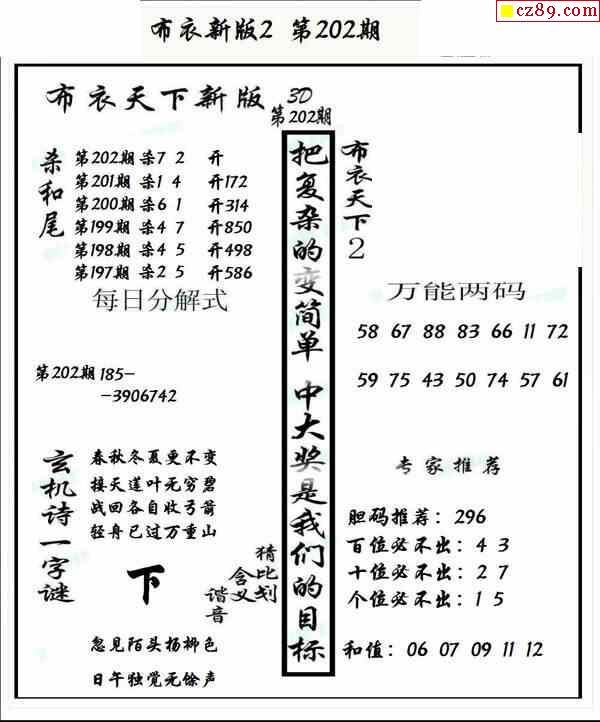 cz89.com
布衣新版2 第202期
布衣天下新版 3D
第202期
杀和尾
第202期 杀7 2 开
第201期 杀1 4 开172
第200期 杀6 1 开314
第199期 杀4 7 开850
第198期 杀4 5 开498
第197期 杀2 5 开586
每日分解式
第202期 185-
-3906742
玄机诗一字谜
春秋冬夏更不变
接天莲叶无穷碧
战回各自收弓箭
轻舟已过万重山
下
猜比划
含义
谐音
忽见陌头杨柳色
日午独觉无馀声
把复杂的变简单 中大奖是我们的目标
布衣天下2
万能两码
58 67 88 83 66 11 72
59 75 43 50 74 57 61
专家推荐
胆码推荐：296
百位必不出：4 3
十位必不出：2 7
个位必不出：1 5
和值：06 07 09 11 12